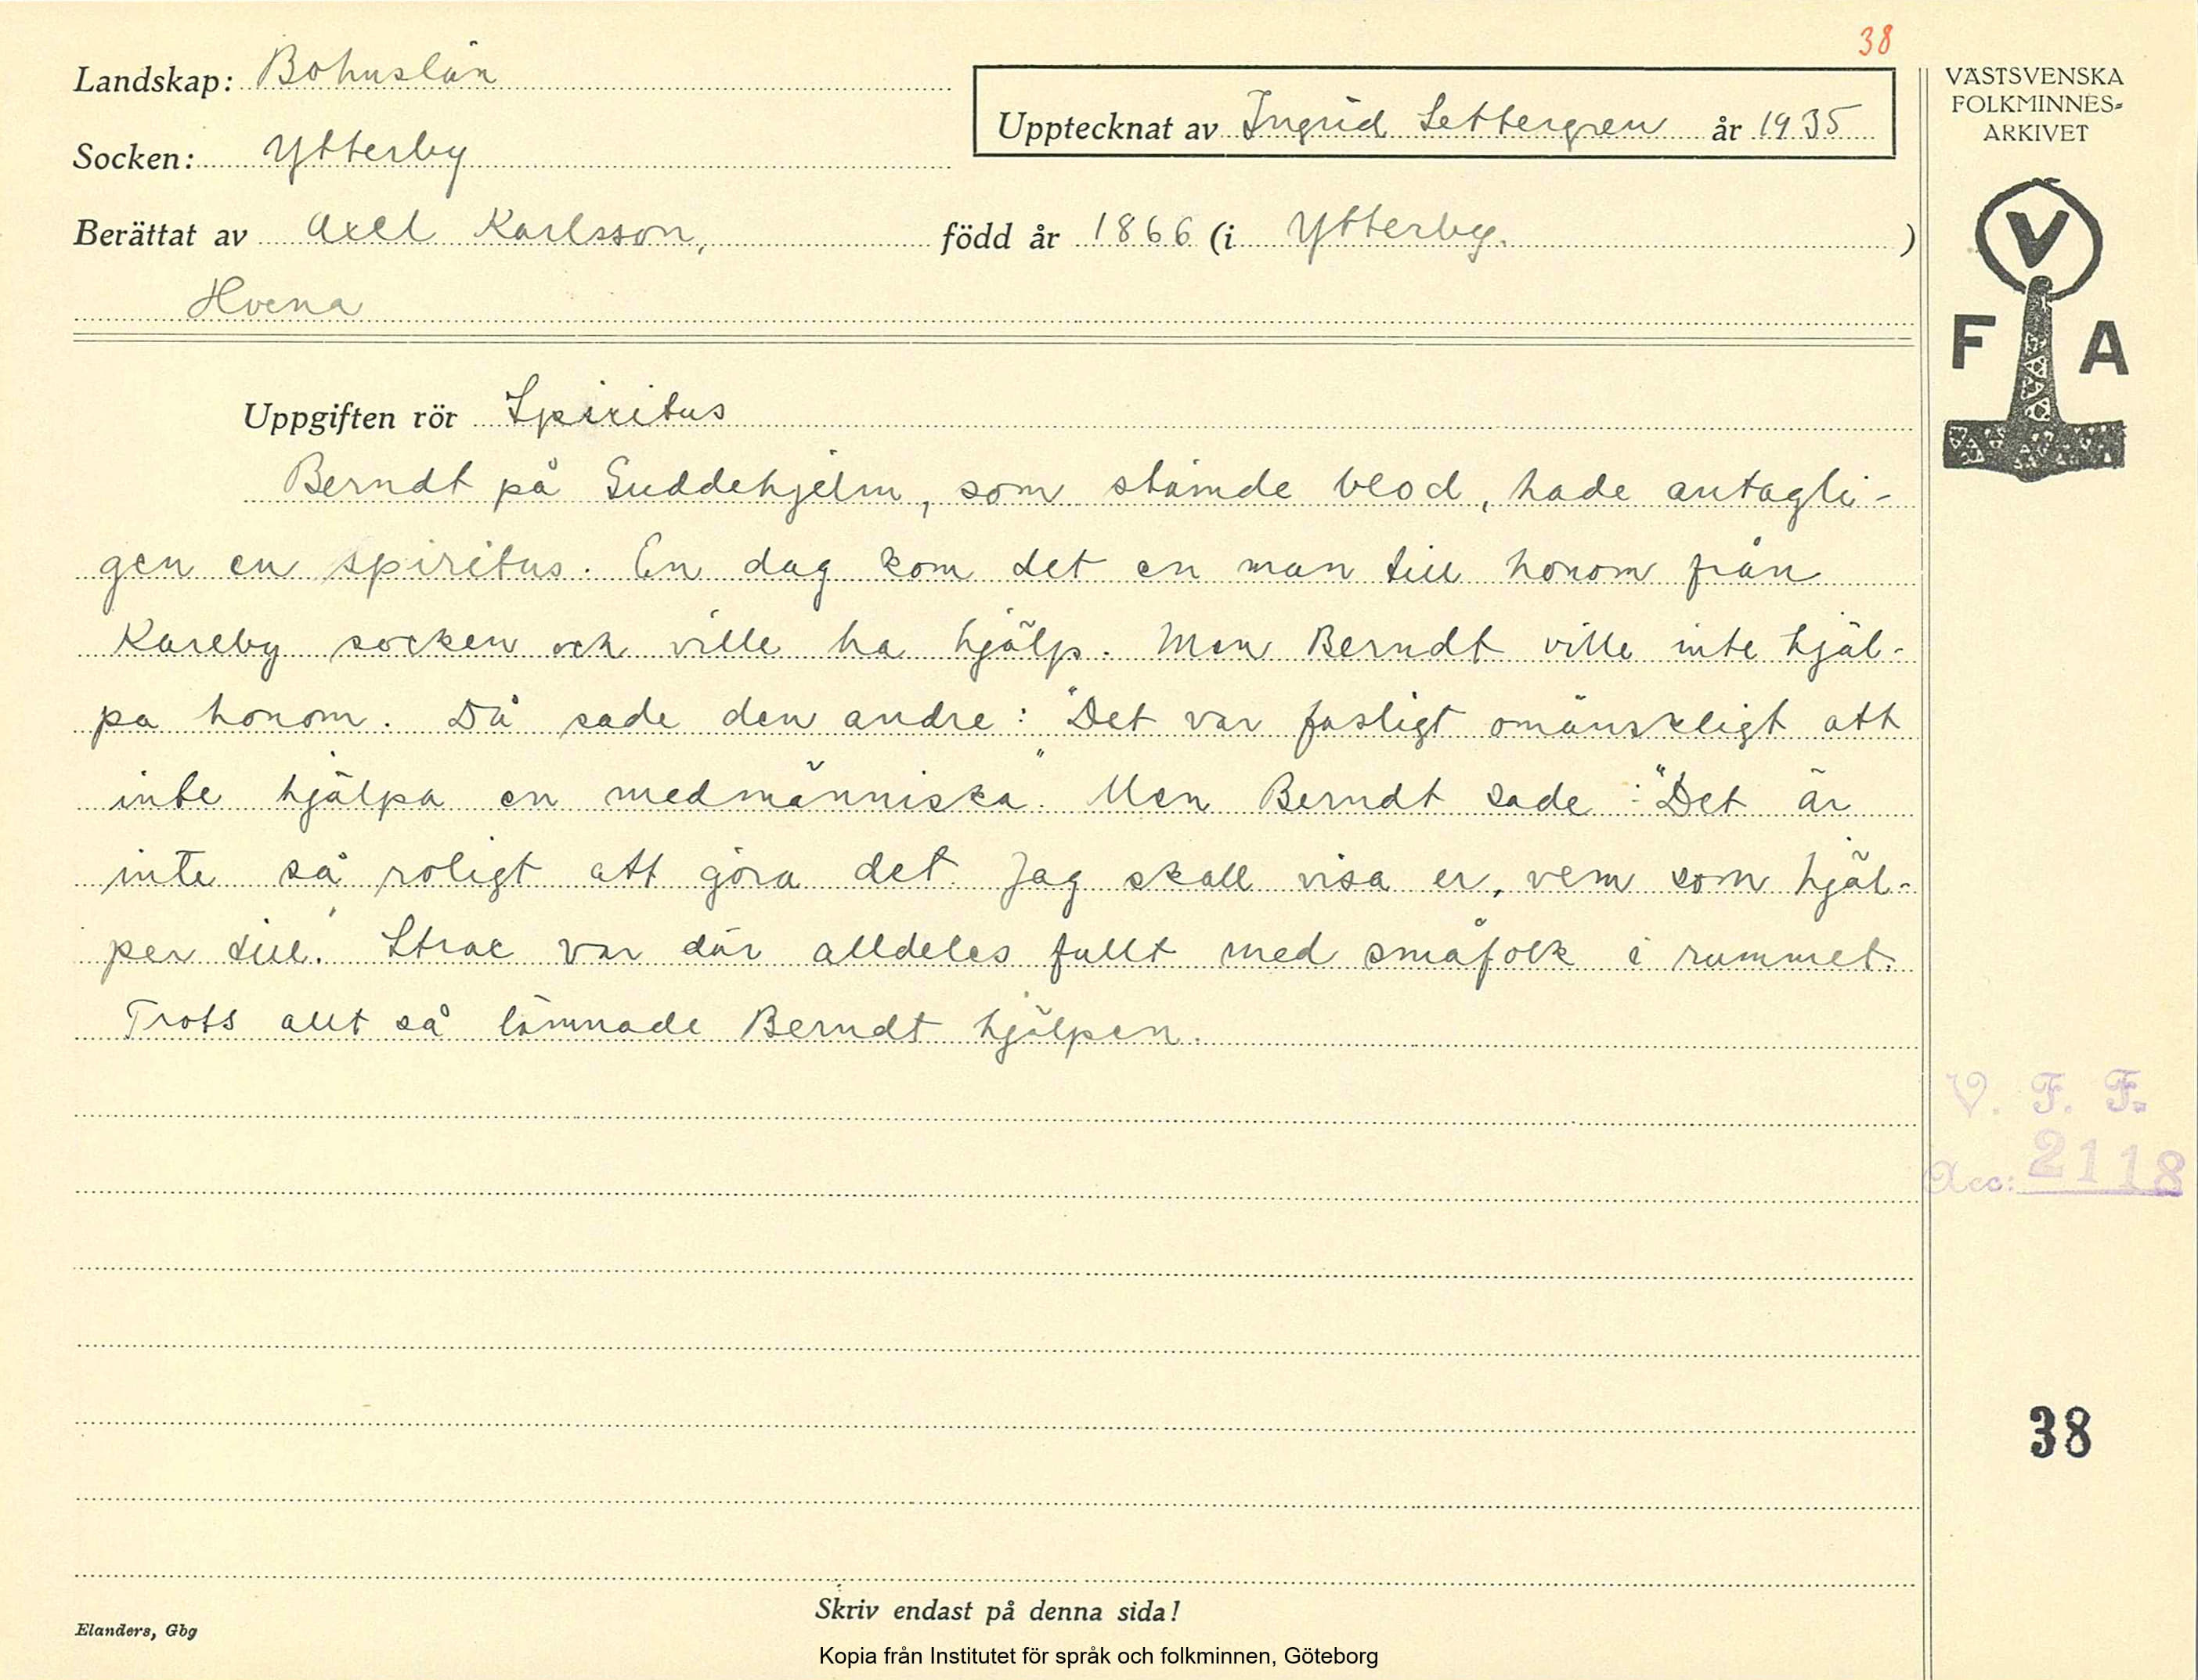 38
Landskap: Bohuslän
Upptecknat av Ingrid Settergren år 1935
Socken: Ytterby
Berättat av Axel Karlsson, född år 1866 (i Ytterby. )
Hvena
VÄSTSVENSKA
FOLKMINNES-
ARKIVET
V
F A
Uppgiften rör Spiritus
Berndt på Guddehjelm, som stämde blod, hade antagli-
gen en spiritus. En dag kom det en man till honom från
Kareby socken och ville ha hjälp. Men Berndt ville inte hjäl-
pa honom. Då sade den andre: "Det var fasligt omänskligt att
inte hjälpa en medmänniska." Men Berndt sade: "Det är
inte så roligt att göra det. Jag skall visa er, vem som hjäl-
per till." Strax var där alldeles fullt med småfolk i rummet.
Trots allt så lämnade Berndt hjälpen.
V. F. F.
Acc: 2118
38
Skriv endast på denna sida!
Elanders, Gbg
Kopia från Institutet för språk och folkminnen, Göteborg